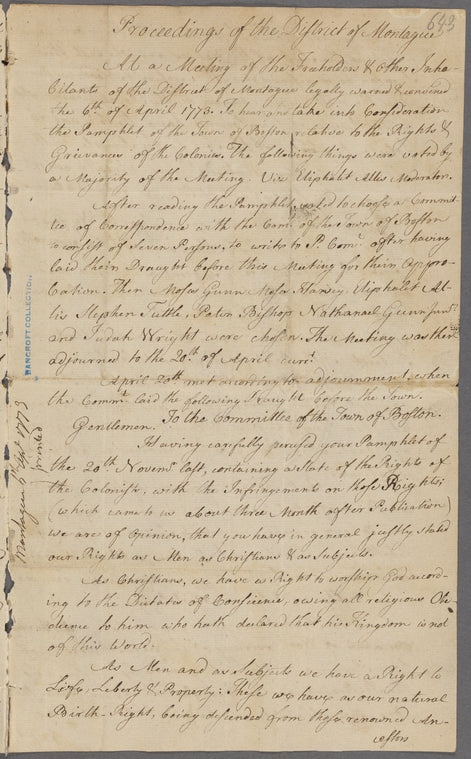 643
Proceedings of the District of Montague
At a Meeting of the Freeholders & Other Inha-
bitants of the District of Montague legally warned & convened
the 6th of April 1773. To hear and take into Consideration
the Pamphlet of the Town of Boston relative to the Rights &
Grievances of the Colonies. The following things were voted by
a Majority of the Meeting. Viz Eliphalet Allis Moderator.
After reading the Pamphlet, voted to choose a Commit
tee of Correspondence with the Comee of the Town of Boston
to consist of Seven Persons, to write to sd. Comee after having
laid their Draught before this Meeting for their Appro-
bation. Then Moses Gunn Moses Harvey Eliphalet Al-
lis Stephen Tuttle, Peter Bishop Nathanael Gunn Junr
and Judah Wright were chosen. The Meeting was then
adjourned to the 20th of April currt
April 20th met according to adjournment, when
the Commee laid the following Draught before the Town.
To the Committee of the Town of Boston.
Gentlemen.
Having carefully perused your Pamphlet of
the 20th Novemr last, containing a State of the Rights of
the Colonists, with the Infringements on those Rights;
(which came to us about three Month after Publication)
we are of Opinion, that you have in general justly stated
our Rights as Men as Christians & as Subjects.
As Christians, we have a Right to worship God accord-
ing to the Dictates of Conscience, owing all religious Obe-
dience to him who hath declared that his Kingdom is not
of this World.
As Men and as Subjects we have a Right to
Life, Liberty & Property: These we have as our natural
Birth-Right, being descended from those renowned An-
cestors
BANCROFT COLLECTION
Montague 6th Apl 1773
printed